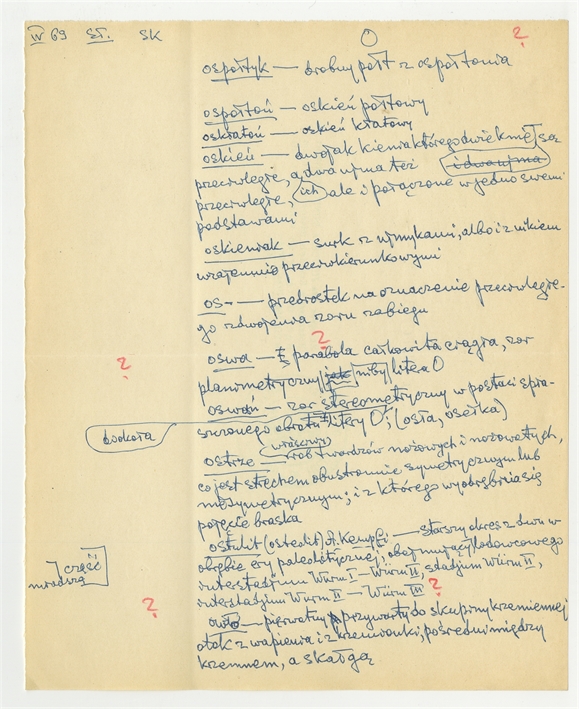 IV 69 St. SK
O
?
ospołtyk — drobny połt z ospołtonia
ospołtoń — oskień połtowy
oskratoń — oskień kratowy
oskień — dwojak kienia którego dwie kmę są
przeciwległe, a dwa ujma też i dwa ujma
przeciwległe, ich ale i połączone w jedno swemi
podstawami
oskieniak — surk z ujmykami, albo i z nikiem
wzajemnie przeciwkierunkowymi
os- — przedrostek na oznaczenie przeciwległe-
go zdwojenia zoru zabiegu
?
?
oswa — parabola całkowita ciągła, zor
planimetryczny niby litera O
oswań — zor stereometryczny w postaci spra-
wionego obrotu litery O; (osła, osełka)
dookoła
właściwie
ostrze — zrób twardzów nożowych i nożowatych,
co jest strechem obustronnie symetrycznym lub
niesymetrycznym; i z którego wyodrębnia się
pojęcie braska
ostulit (osteolit) A. Kempfi — starszy okres z dwu w
obrębie ery paleolitycznej, obejmujący lodowcowego
część
interstadium Würm I — Würm II, stadium Würm II,
interstadium Würm II — Würm III
?
?
— pierwotny przywarty do skupiny krzemiennej
otok z wapienia i z krzemionki, pośredni między
krzemnem, a skałgą